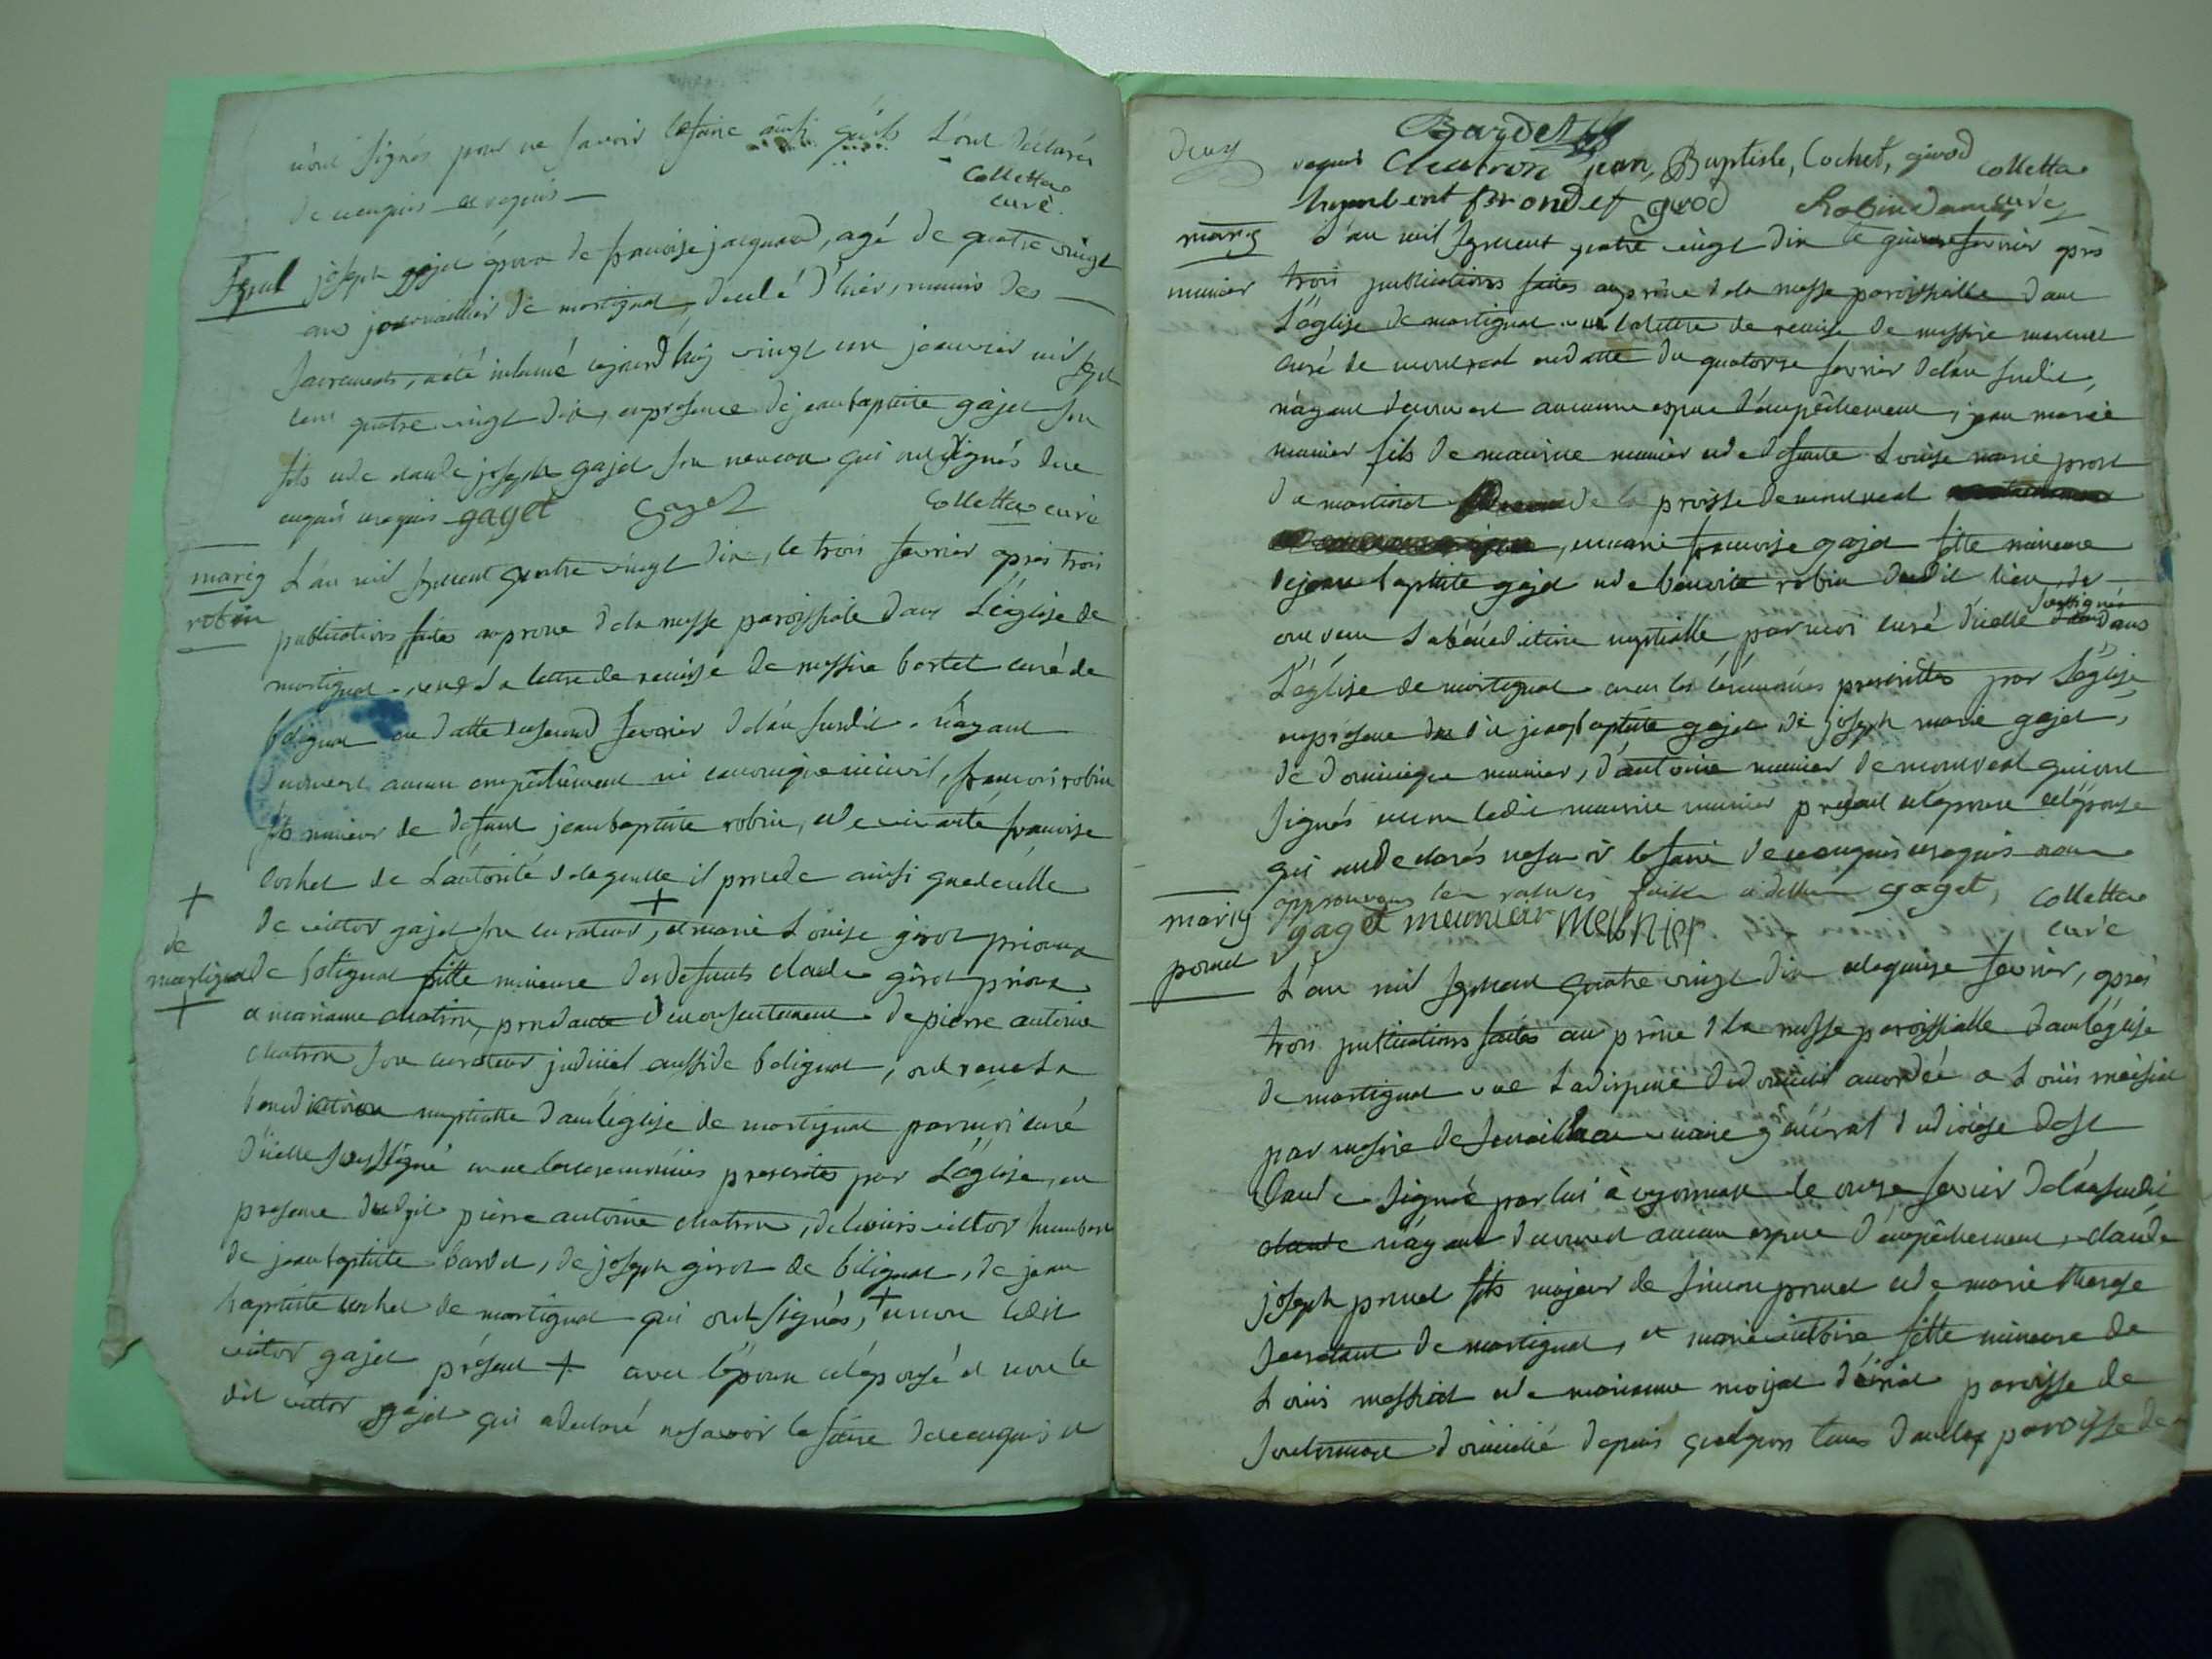 n'ont signés pour ne savoir le faire ainsi qu'ils L'ont déclarés
de ce enquis et requis
Colletta
curé
Sepul joseph gajet époux de françoise jacquand, agé de quatre vingt
ans journaillier de martignat, décédé d'hier, munis des
sacrements, a été inhumé aujourd'huy vingt un janvier mil sept
cent quatre vingt dix, en presence de jean baptiste gajet son
fils et de claude joseph gajet son neveau qui ont signés de ce
enquis et requis gaget gaget Colletta curé
mariag L'an mil sept cent quatre vingt dix, le trois fevrier après trois
robin publications faites au prone de la messe paroissiale dans L'église de
martignat, vu la lettre de remise de messire bortet curé de
béligna en datte du second fevrier de l'an susdit. n'ayant
decouvert aucun empêchement ni canonique ni civil, francois robin
fils mineur de defunt jean baptiste robin, et de vivante francoise
cochet de L'autorité de laquelle il procede ainsi que de celle
de victor gajet son curateur, + et marie Louise girod prioux
+ de martignat +
de béligna fille mineure des defunts claude girod prioux
et marianne chatron, procedante du consentement de pierre antoine
chatron son curateur judiciel aussi de belignat, ont reçu La
benediction nuptialle dans L'église de martignat par moi curé
d'icelle soussigné avec les ceremonies prescrites par L'église, en
presence dudit pierre antoine chatron, de Louis victor humbert
de jean baptiste bardet, de joseph girod de bélignat, de jean
baptiste cochet de martignat qui ont signés, + et non ledit
victor gajet présent + avec l'époux et l'épouse et non le
dit victor gajet qui a declaré ne savoir le faire de ce enquis et
deux
Bardet
requis Chatron jean, Baptiste, Cochet, girod Colletta
humbert Brondet girod Robin curé
mariag L'an mil sept cent quatre vingt dix le quinze fevrier après
munier trois publications faites au prône de la messe paroissialle dans
L'église de martignat vu la lettre de remise de messire
curé de montreal en datte du quatorze fevrier de l'an susdit,
n'ayant decouvert aucunne espece d'empêchement, jean marie
munier fils de maurice munier et de defunte Louise marie prost
de martinet de la proisse de montreal
, et marie francoise gajet fille mineure
de jean baptiste gajet et de benoite robin dudit lieu
ont reçu La bénédiction nuptialle par moi curé d'icelle soussigné dans
L'église de martignat avec les cérémonies prescrittes par L'église
en présence du dit jean baptiste gajet de joseph marie gajet,
de dominique munier, d'antoine munier de montreal qui ont
signés et non ledit maurice munier present et l'époux et l'épouse
qui ont declarés ne savoir le faire de ce enquis et requis nous
approuvons les ratures faites ci dessus gaget, Colletta
gaget meunier MeUNIer curé
mariag L'an mil sept cent quatre vingt dix et le quinze fevrier, après
poncet trois publications faites au prône de la messe paroissialle dans L'église
de martignat vue La dispense de domicile accordée a Louis
par messire de vicaire général du diocèse de St
Claude signée par lui à oyonnax le onze fevrier de l'an susdit
n'ayant decouvert aucun espece d'empêchement, claude
joseph poncet fils majeur de simon poncet et de marie therese
de martignat, et marie victoire fille mineure de
Louis et de marianne paroisse de
domicilié depuis quelques tems dans la paroisse de